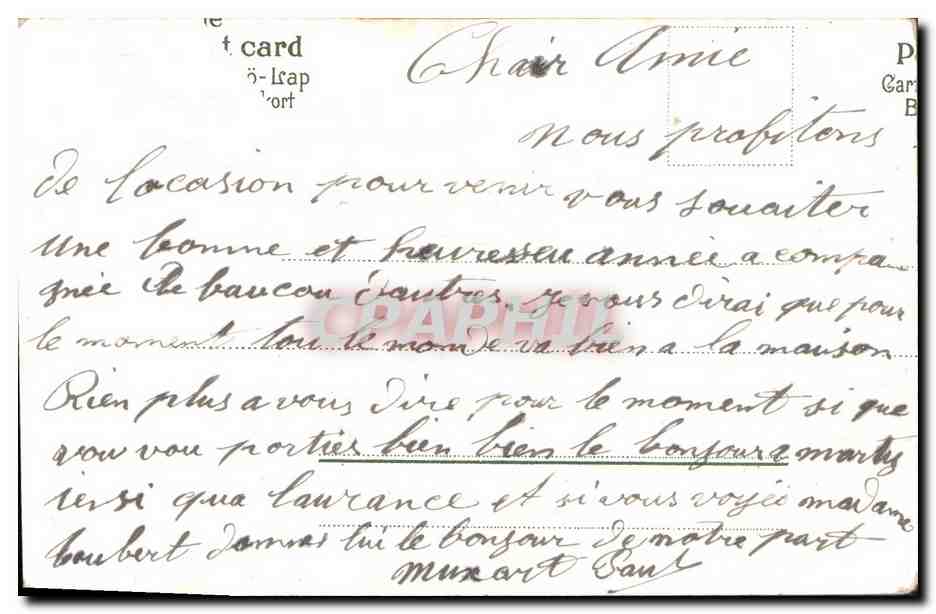 t card
ö-Lap
kort
P
Car
B
Chair Amie
nous profitons
de locasion pour venir vous souaiter
une bonne et heuresseu année a compa
gnée de baucou d'autres. je vous dirai que pour
le moment tou le monde va bien a la maison
Rien plus a vous dire pour le moment si que
vou vou portiés bien bien le bonjour a
iensi qua laurance et si vous voyée madame
boubert donnés lui le bonjour de notre part
Paul
CPAPHIL